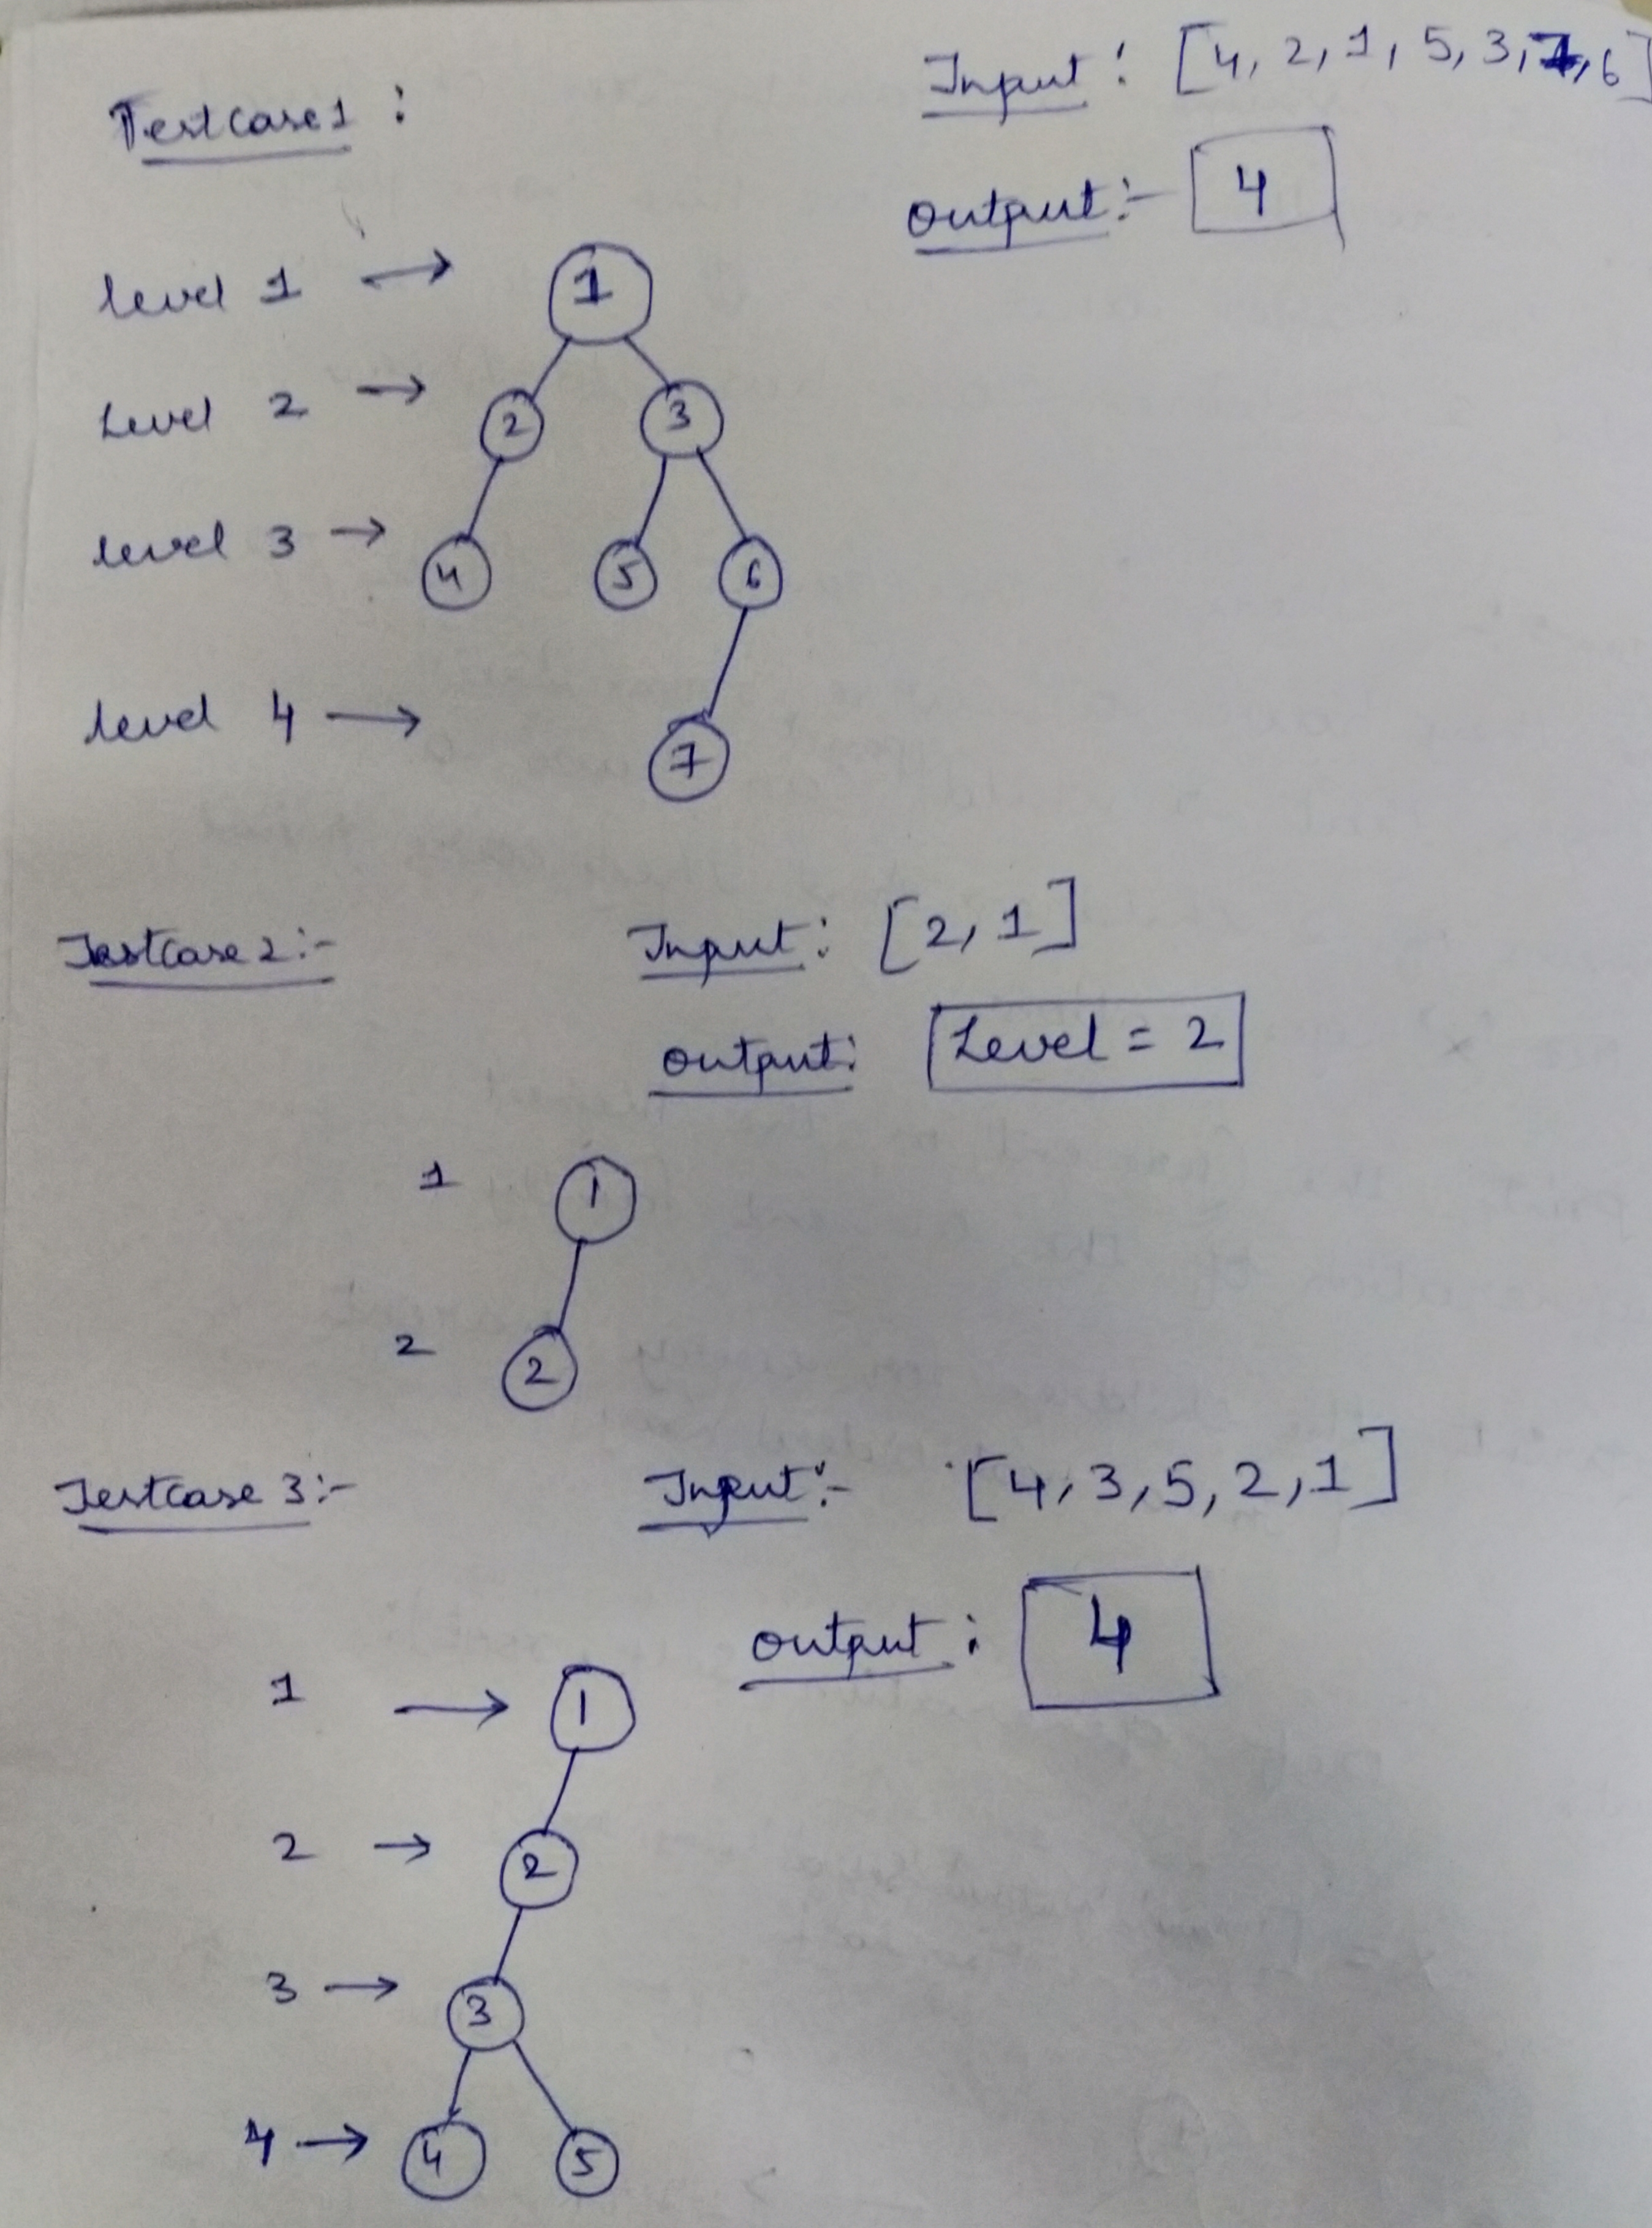 Testcase1 :
Input : [4, 2, 1, 5, 3, 7, 6]
output :- 4
level 1 → 1
Level 2 → 2 3
level 3 → 4 5 6
level 4 → 7
Testcase 2 :-
Input : [2, 1]
output : Level = 2
1 1
2 2
Testcase 3 :-
Input :- [4, 3, 5, 2, 1]
output : 4
1 → 1
2 → 2
3 → 3
4 → 4 5